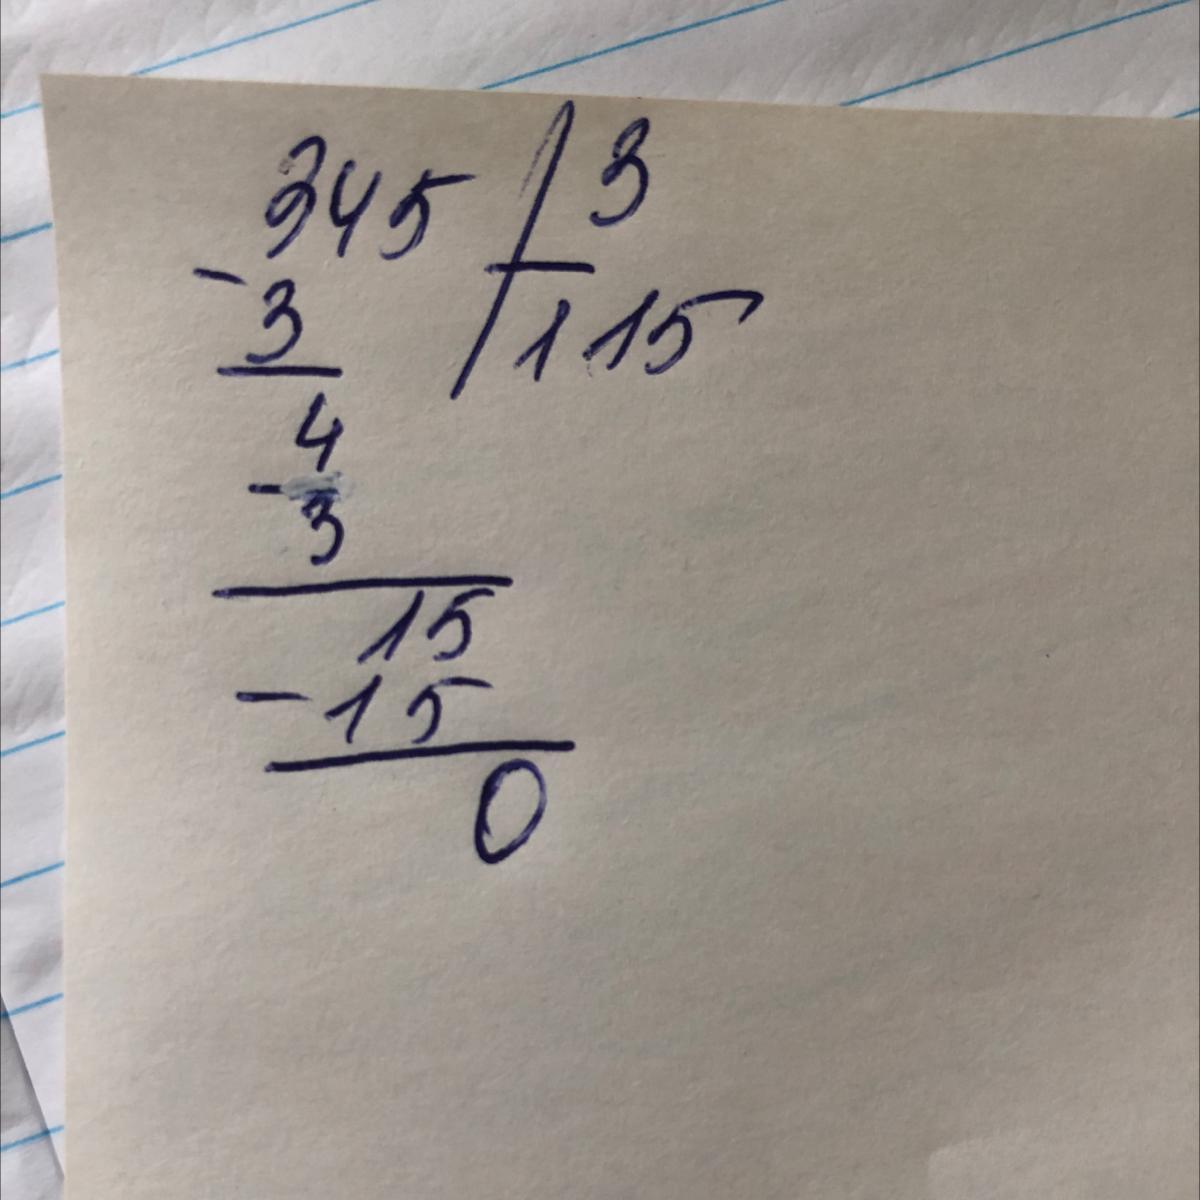 345 3
- 3 115
4
- 3
15
- 15
0